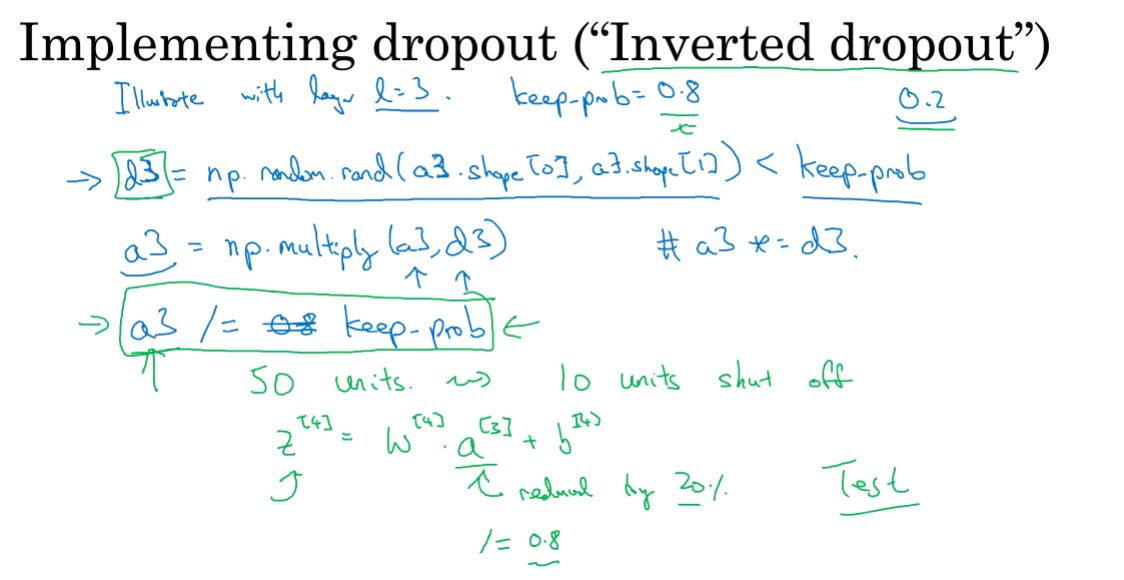 Implementing dropout (“Inverted dropout”)
Illustrate with layer l=3. keep-prob= 0.8 0.2
→ d3 = np.random.rand(a3.shape[0], a3.shape[1]) < keep-prob
a3 = np.multiply(a3,d3) # a3 *= d3.
→ a3 /= 0.8 keep-prob ←
50 units. ⇝ 10 units shut off
z[4] = W[4] · a[3] + b[4]
reduced by 20%. Test
/= 0.8